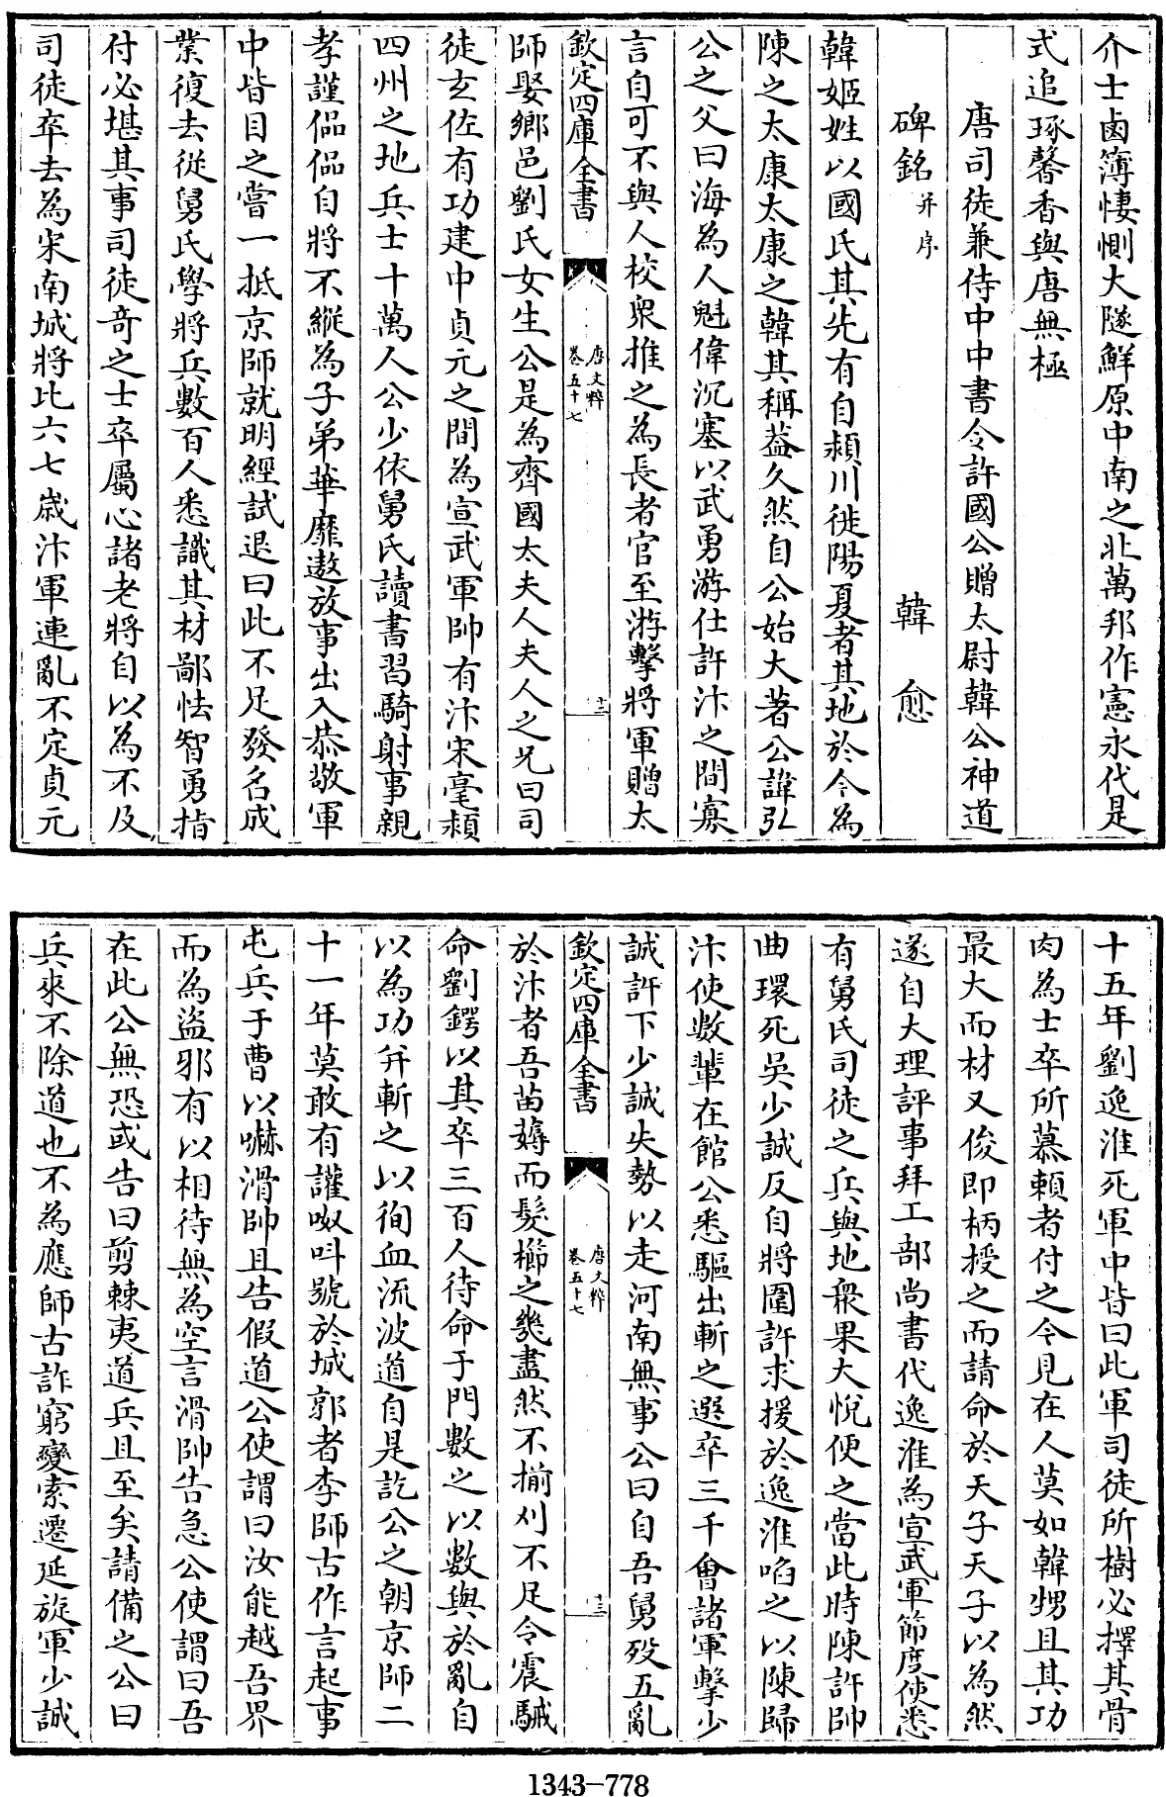 介士鹵簿悽惻大隧鮮原中南之北萬邦作憲永代是
式追琢馨香與唐無極
唐司徒兼侍中中書令許國公贈太尉韓公神道
碑銘并序 韓愈
韓姬姓以國氏其先有自潁川徙陽夏者其地於今為
陳之太康太康之韓其稱蓋久然自公始大著公諱弘
公之父曰海為人魁偉沉塞以武勇游仕許汴之間寡
言自可不與人校衆推之為長者官至游擊將軍贈太
欽定四庫全書 唐文粹 卷五十七 十二
師娶鄉邑劉氏女生公是為齊國太夫人夫人之兄曰司
徒玄佐有功建中貞元之間為宣武軍帥有汴宋亳潁
四州之地兵士十萬人公少依舅氏讀書習騎射事親
孝謹偘偘自將不縱為子弟華靡遨放事出入恭敬軍
中皆目之嘗一抵京師就明經試退曰此不足發名成
業復去從舅氏學將兵數百人悉識其材鄙怯智勇指
付必堪其事司徒竒之士卒屬心諸老將自以為不及
司徒卒去為宋南城將比六七歲汴軍連亂不定貞元
十五年劉逸淮死軍中皆曰此軍司徒所樹必擇其骨
肉為士卒所慕賴者付之今見在人莫如韓甥且其功
最大而材又俊即柄授之而請命於天子天子以為然
遂自大理評事拜工部尚書代逸淮為宣武軍節度使悉
有舅氏司徒之兵與地衆果大悅便之當此時陳許帥
曲環死吳少誠反自將圍許求援於逸淮啗之以陳歸
汴使數輩在館公悉驅出斬之選卒三千會諸軍擊少
誠許下少誠失勢以走河南無事公曰自吾舅歿五亂
欽定四庫全書 唐文粹 卷五十七 十三
於汴者吾苗薅而髮櫛之幾盡然不揃刈不足令震駴
命劉鍔以其卒三百人待命于門數之以數與於亂自
以為功并斬之以徇血流波道自是訖公之朝京師二
十一年莫敢有讙呶叫號於城郭者李師古作言起事
屯兵于曹以嚇滑帥且告假道公使謂曰汝能越吾界
而為盜邪有以相待無為空言滑帥告急公使謂曰吾
在此公無恐或告曰剪棘夷道兵且至矣請備之公曰
兵來不除道也不為應師古詐窮變索遷延旋軍少誠
1343-778